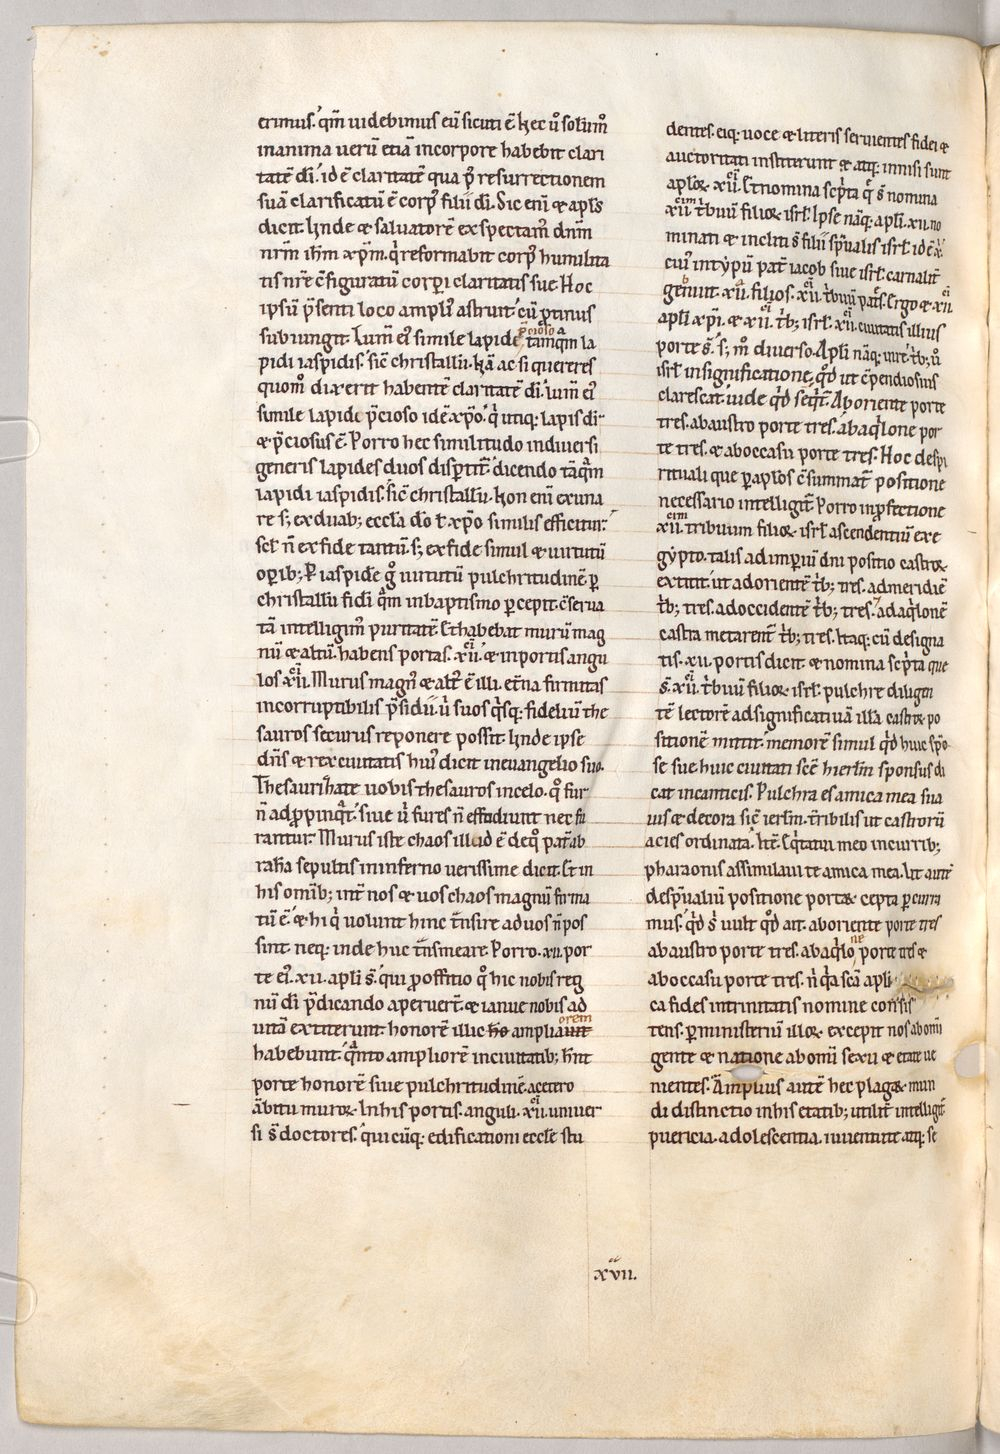 erimus. qm̄ uidebimus eū sicuti ē. hec ū̊ solum̊
in anima uerū etiā in corpore habebit clari
tatē dī. id ē claritatē qua p̄ resurrectionem
suā clarificatū ē corp᾽ filii dī. Sic enī & ap̄ls
dicit. Unde & saluatorē exspectam᾽ dn̄m
nr̄m ih̄m xp̄m. q̇ reformabit corp᾽ humilita
tis nr̄e ↄ̄figuratū corp̱i claritatis sue. Hoc
ipsū p̄senti loco ampl᾽ astruit. cū ꝓtinus
subiungit. Lum̄ ei᾽ simile lapidi p̄cioso tamqm̄ la
pidi iaspidis. sic̄ christallū. Hā ac si quereres
quom̊ dixerit habentē claritatē dī. lum̄ ei᾽
simile lapidi p̄cioso id ē xp̄o. q̇ utiq; lapis di
& p̄ciosus ē. Porro hec similitudo in diuersi
generis lapides duos disp̱tit᾽ dicendo tāqm̄
lapidi iaspidis. sic̄ christallū. Non enī ex una
re s; ex duab; eccl̄a dō ł xp̄o similis efficitur.
scł n̄ ex fide tantū. s; ex fide simul & uirtutū
op̱ib; P̱ iaspidē g̊ uirtutū pulchritudinē p̱
christallū fidī q̄m in baptismo p̱cepit. ↄ̄serua
tā intelligim᾽ puritatē. Et habebat murū mag
nū & altū. habens portas .xii. & in portis angu
los xii. Murus magn᾽ & alt᾽ ē illi. et̄na firmitas
incorruptibilis p̄sidii. u̇ suos q̇sq; fideliū the
sauros securus reponere possit. Unde ipse
dn̄s & rex ciuitatis hui᾽ dicit in euangelio suo.
Thesaurizate uobis thesauros in celo. q̊ fur
n̄ adp̱pinq̇t. siue u̇ fures n̄ effodiunt nec fu
rantur. Murus iste chaos illud ē de q̊ pat᾽ ab
rahā sepultis in inferno uerissime dicit. Et in
his omīb; int̄ nos & uos chaos magnū firma
tū ē. & hi q̇ uolunt hinc t̄nsire ad uos n̄ pos
sint. neq; inde huc t̄nsmeare. Porro .xii. por
te ei᾽ .xii. apłi s̄. qui p̱ offitio q̊ hic nobis reg
nū dī p̄dicando aperuer̄t. & ianue nobis ad
uitā extiterunt. honorē illic ho ampliauit orem
habebunt. q̄nto ampliorē in ciuitatib; hn̄t
porte honorē siue pulchritudinē a cetero
ābitu muroꝝ. In his portis. anguli .xii. uniuer
si s̄ doctores. qui cūq; edificationi eccl̄e stu
dentes. eiq; uoce & literis seruientes fidei &
auctoritati institerunt & atq; innisi sunt
apłoꝝ. xii. Et nomina sc̄pta q̄ s̄ nomina
xii. t̄buū filioꝝ isrł. Ipse nāq; apłi .xii. no
minati & incliti s̄ filii sp̄ualis isrł. id ē x̄.
cui᾽ in typū pat᾽ iacob siue isrł carnalit᾽
genuit .xii. filios. xii. t̄buū pat̄s. Ergo & xii.
apłi xp̄i. & xii. t̄b; isrł. xii. ciuitatis illius
porte s̄. s; m̊ diuerso. Apłi nāq; ut t̄b; ū̊
isrł in significatione, q̊d ut ↄ̄pendiosius
clarescat. uide q̇d seq̇t᾽. Ab oriente porte
tres. ab austro porte tres. ab aq̇lone por
te tres. & ab occasu porte tres. Hoc de sp̱i
rituali que p̱ ap̄los ↄ̄summat᾽ positione
necessario intelligit᾽. Porro in p̱fectione
xii. tribuum filioꝝ isrł ascendentiū ex e
gypto. talis ad imp̱iū dn̄i positio castroꝝ
extitit. ut ad orientē t̄b; tres. ad meridiē
t̄b; tres. ad occidentē t̄b; tres. & ad aq̇lonē
castra metarent᾽ t̄b; tres. Itaq; cū designa
tis .xii. portis dicit. & nomina sc̄pta que
s̄ xii. t̄buū filioꝝ isrł. pulchre diligen
tē lectorē ad significatiuā illā castroꝝ po
sitionē mittit. memorē simul q̇d huic spō
se sue. huic ciuitati scē hierłm sponsus di
cat in canticis. Pulchra es amica mea sua
uis & decora sic̄ ierłm. t̄ribilis ut castrorū
acies ordinata. Itē. Eq̇tatui meo in currib;
pharaonis assimilaui te amica mea. Ut autē
de sp̄ualiū positione portaꝝ cepta p̱curra
mus. q̇d s̄ uult q̊d ait. ab oriente porte tres
ab austro porte tres. ab aq̇lone porte tres &
ab occasu porte tres. n̄ q̇a sc̄a apłi
ca fides in trinitatis nomine consis
tens. p̱ ministeriū illoꝝ. excepit nos ab omī
gente & natione ab omī sexu & etate ue
nientes. Amplius autē hec plagaꝝ mun
di distinctio in his etatib; utilit᾽ intelligit᾽
puericia. adolescentia. iuuentute atq; se
xvii.